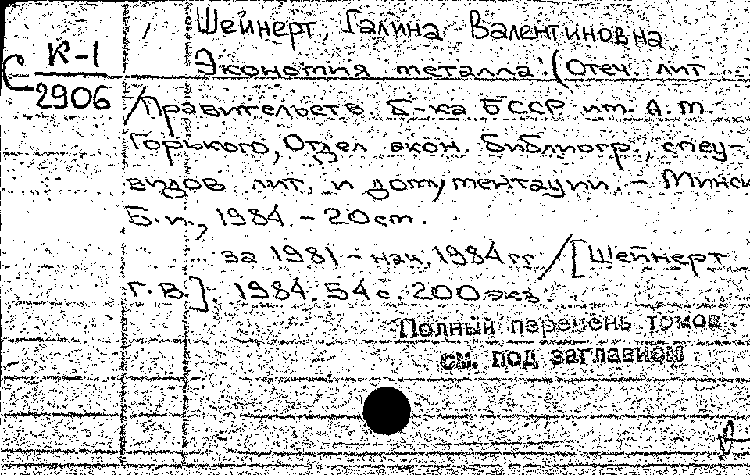 К-1
2906
Шейнерт, Галина Валентиновна
Экономия металла: (Отеч. лит.
/Правительств. б-ка БССР им. А.М.
Горького, Отдел экон. библиогр., спец-
видов лит. и документации. – Минск
Б.и., 1984. – 20 см.
за 1981 – нач. 1984 гг. / [Шейнерт
Г.В.]. 1984. 54 с. 200 экз.
Полный перечень томов
см. под заглавием